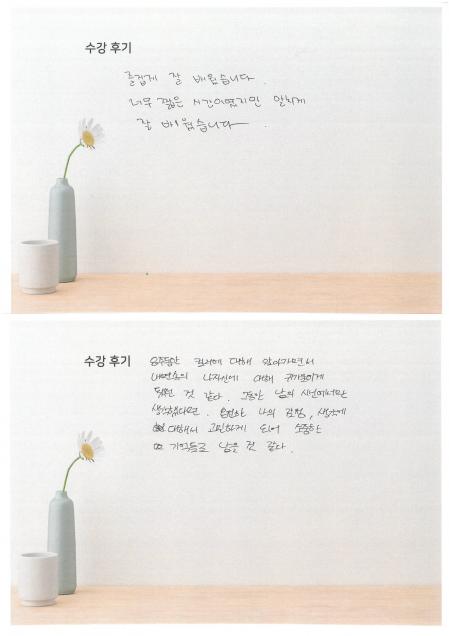 수강 후기
즐겁게 잘 배웠습니다.
너무 짧은 시간이였지만 알차게
잘 배웠습니다.
수강 후기
8주동안 컬러에 대해 알아가면서
내면속의 나자신에 대해 귀기울이게
되었던 것 같다. 그동안 남의 시선에서만
생각했다면. 온전한 나의 감정, 생각에
대해서 고민하게 되어 소중한
기억들로 남을 것 같다.